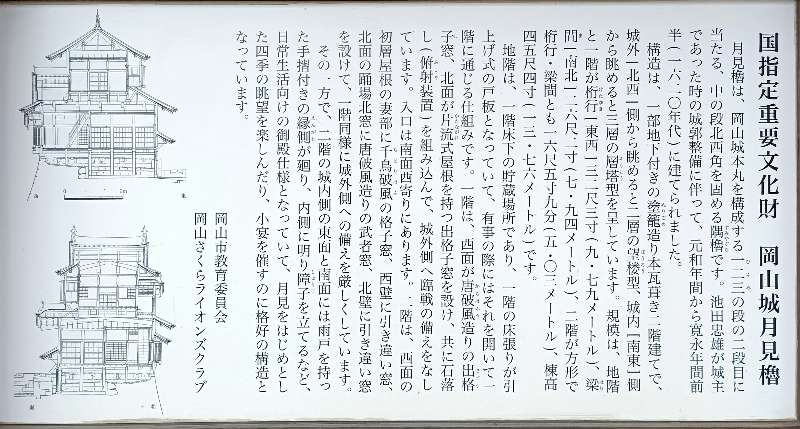 国指定重要文化財　岡山城月見櫓
月見櫓は、岡山城本丸を構成する一二三の段の二段目に
当たる、中の段北西角を固める隅櫓です。池田忠雄が城主
であった時の城郭整備に伴って、元和年間から寛永年間前
半(一六二〇年代)に建てられました。
構造は、一部地下付きの塗籠造り本瓦葺き二階建てで、
城外(北西)側から眺めると二層の望楼型、城内(南東)側
から眺めると三層の層塔型を呈しています。規模は、地階
と一階が桁行(東西)三二尺三寸(九・七九メートル)、梁
間(南北)二六尺二寸(七・九四メートル)、二階が方形で
桁行・梁間とも一六尺五寸九分(五・〇三メートル)、棟高
四五尺四寸(一三・七六メートル)です。
地階は、一階床下の貯蔵場所であり、一階の床張りが引
上げ式の戸板となっていて、有事の際にはそれを開いて一
階に通じる仕組みです。一階は、西面が唐破風造りの出格
子窓、北面が片流式屋根を持つ出格子窓を設け、共に石落
し(俯射装置)を組み込んで、城外側へ臨戦の備えをなし
ています。入口は南面西寄りにあります。二階は、西面の
初層屋根の妻部に千鳥破風の格子窓、西壁に引き違い窓、
北面の踊場北窓に唐破風造りの武者窓、北壁に引き違い窓
を設けて、一階同様に城外側への備えを厳しくしています。
その一方で、二階の城内側の東面と南面には雨戸を持っ
た手摺付きの縁側が廻り、内側に明り障子を立てるなど、
日常生活向けの御殿仕様となっていて、月見をはじめとし
た四季の眺望を楽しんだり、小宴を催すのに格好の構造と
なっています。
岡山市教育委員会
岡山さくらライオンズクラブ